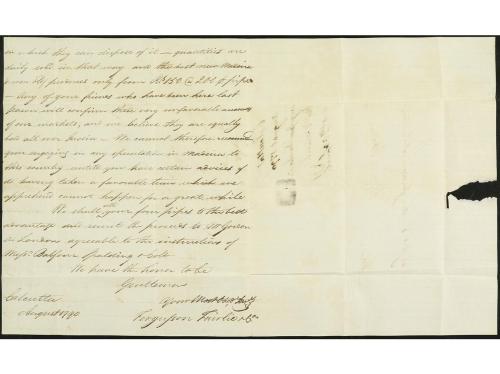 in which they can dispose of it – quantities are
daily sold in that way and the best new Madeira
now only from Rs 150 @ 200 p pipe
– Any of your friends who have been here last
season will confirm this very unfavorable account
of our markets, and we believe they are equally
bad all over India – We cannot therefore recommend
your engaging in any speculation in Madeira to
this country until you have certain advices of
its having taken a favourable turn, which we
apprehend cannot happen for a great while
We shall your four pipes to the best
advantage and remit the proceeds to Mr
in London agreeable to the instructions of
Messrs. Balfour Spalding & Co
We have the honor to be
Gentlemen
Calcutta
Your Most Obt
August 1790
Fergusson Fairlie & Co